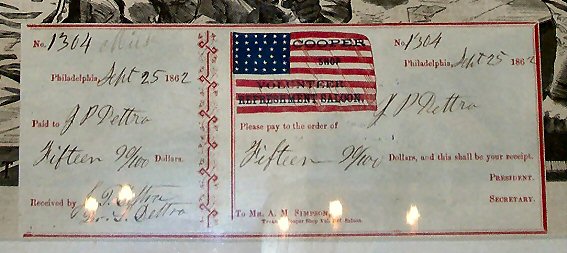 No. 1304
Philadelphia, Sept 25 1862
Paid to J P Dettra
Fifteen 00/100 Dollars.
Received by
COOPER
SHOP
VOLUNTEER
REFRESHMENT SALOON.
No. 1304
Philadelphia, Sept 25 1862
J P Dettra
Please pay to the order of
Fifteen 00/100 Dollars, and this shall be your receipt.
PRESIDENT.
SECRETARY.
To Mr. A. M. SIMPSON,
Cooper Shop Vol. Ref. Saloon.